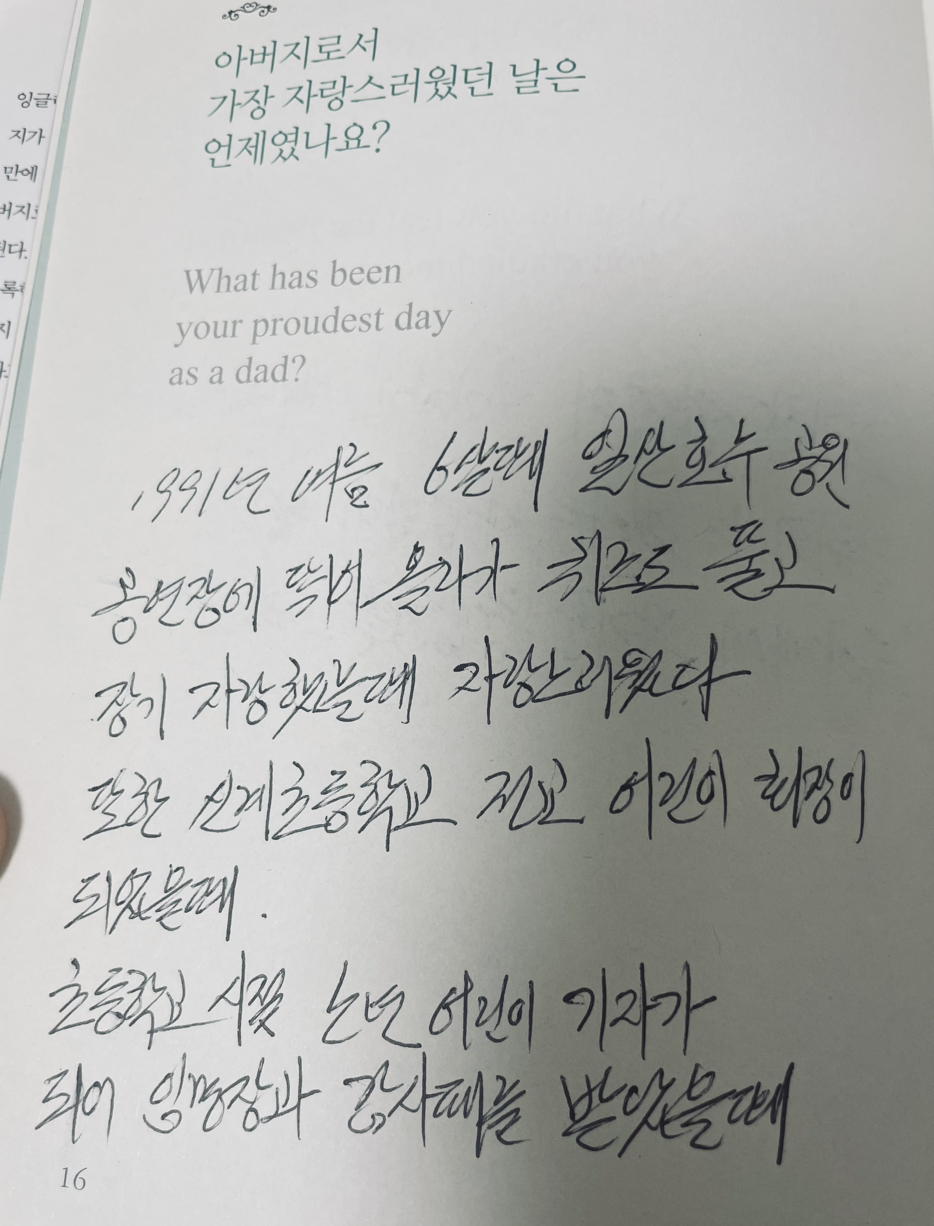 잉글
지가
만에
버지
된다.
록
지
아버지로서
가장 자랑스러웠던 날은
언제였나요?
What has been
your proudest day
as a dad?
1991년 여름 6살때 일산호수 공원
공연장에 뛰어 올라가 퀴즈도 풀고
장기 자랑했을때 자랑스러웠다
또한 신계초등학교 전교 어린이 회장이
되었을때.
초등학교 시절 소년 어린이 기자가
되어 임명장과 감사패를 받았을때
16